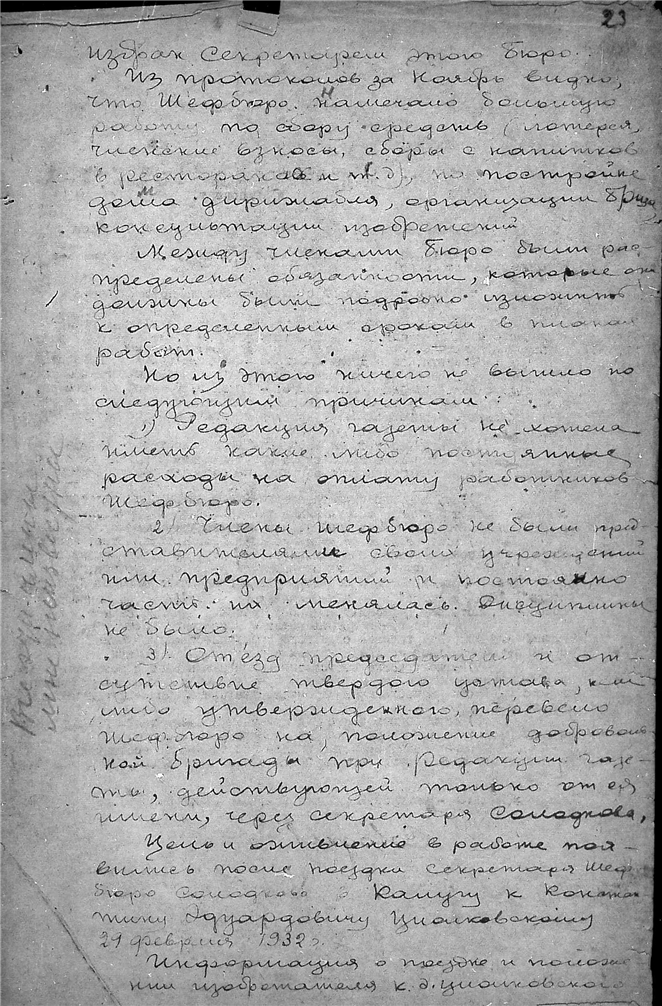 23
избран секретарем этого бюро.
Из протоколов за Ноябрь видно,
что Шефбюро намечало большую
работу по сбору средств (лотерея,
членские взносы, сборы с напитков
в ресторанах и т.д), по постройке
дома дирижабля, организации бриза,
консультации изобретений
Между членами бюро были рас-
пределены обязанности, которые они
должны были подробно изложить
к определенным срокам в планах
работ.
Но из этого ничего не вышло по
следующим причинам:
1) Редакция газеты не хотела
иметь какие либо постоянные
расходы на оплату работников
Шефбюро.
2) Члены шефбюро не были пред-
ставителями своих учреждений
или предприятий и постоянно
часть их менялась. Дисциплины
не было.
3) От'езд председателя и от-
сутствие твердого устава, кем
либо утвержденного, перевело
Шефбюро на положение доброволь-
ной бригады при Редакции газе-
ты, действующей только от ея
имени, через секретаря Солодкова.
Цель и оживление в работе поя-
вились после поездки секретаря Шеф-
бюро Солодкова в Калугу к Констан-
тину Эдуардовичу Циолковскому
21 февраля 1932 г.
Информация о поездке и положе-
нии изобретателя К.Э. Циолковского